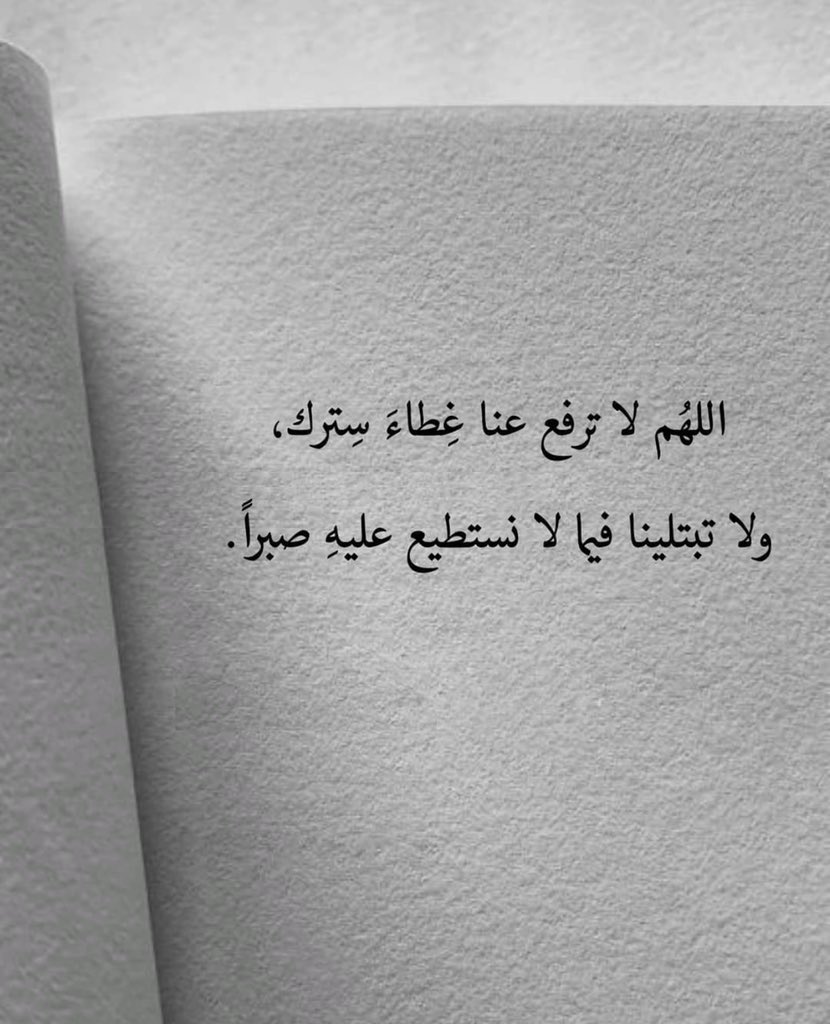 اللهُم لا ترفع عنا غِطاءَ سِترك،
ولا تبتلينا فيما لا نستطيع عليهِ صبراً.